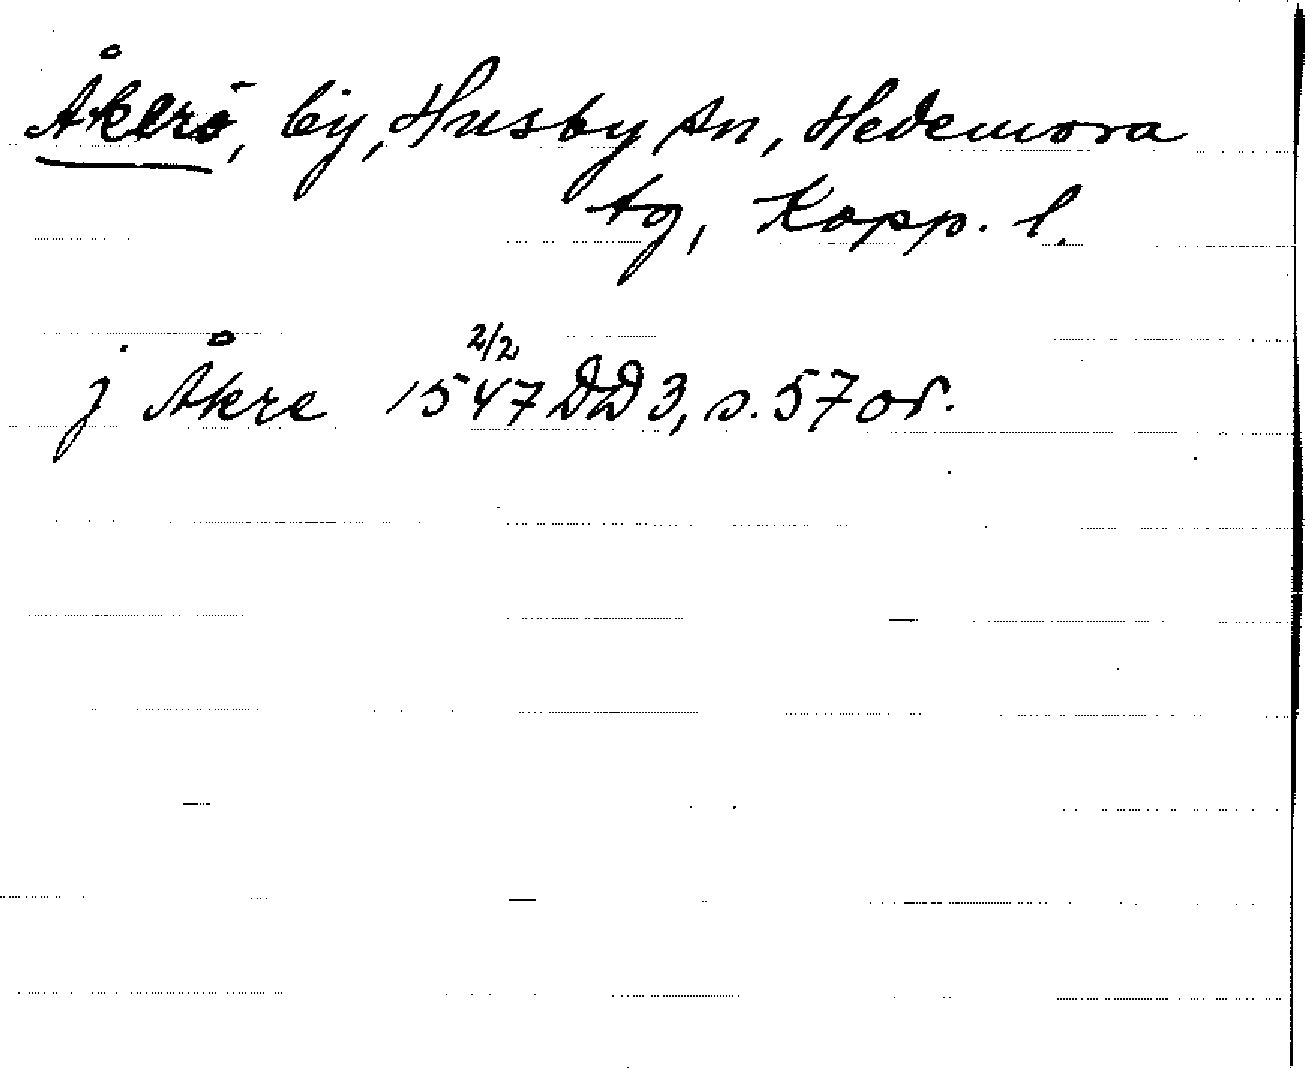 Åkerö, by, Husby sn, Hedemora
tg, Kopp. l.
j Åkre 1547 2/2 DD 3, s. 57 or.